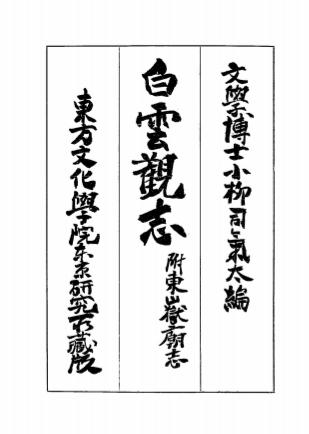 文學博士小柳司氣太編
白雲觀志
附東嶽廟志
東方文化學院東京研究所藏版